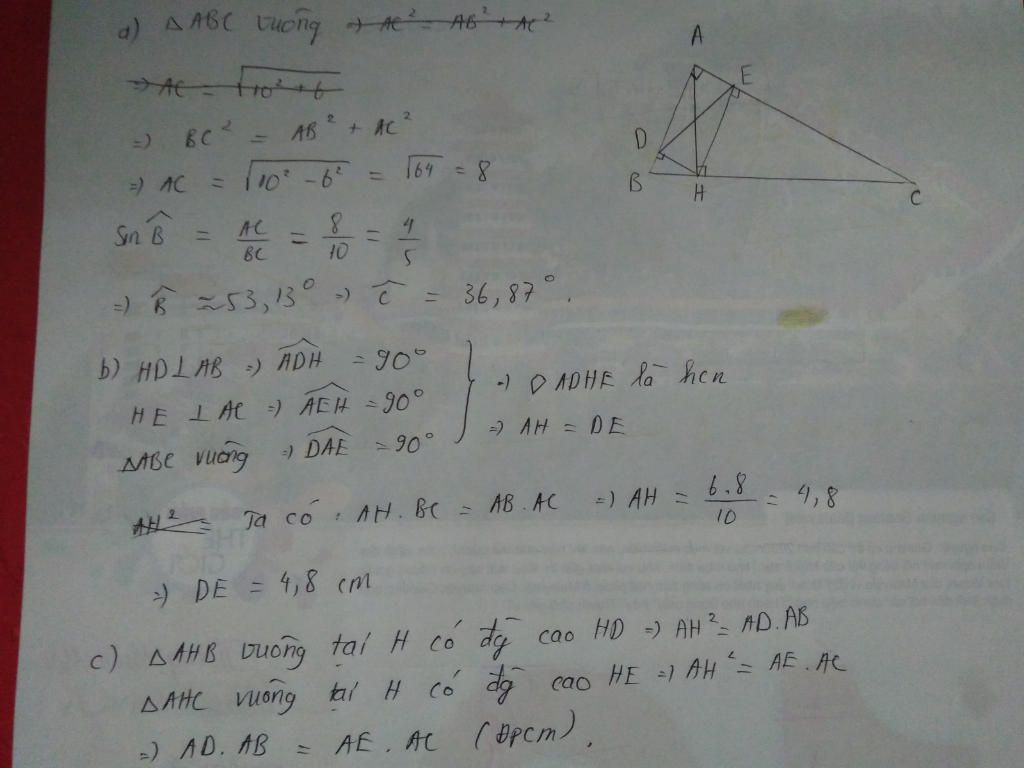 a) △ABC vuông ⇒ AC² = AB² + AC²
⇒ AC = √10² + 6
⇒ BC² = AB² + AC²
⇒ AC = √10² - 6² = √64 = 8
Sin B̂ = AC/BC = 8/10 = 4/5
⇒ B̂ ≈ 53,13° ⇒ Ĉ = 36,87°.
A
E
D
B
H
C
b) HD⊥AB ⇒ ADH = 90°
HE ⊥ AC ⇒ AEH = 90°
△ABC vuông ⇒ DAE = 90°
⇒ ◇ ADHE là hcn
⇒ AH = DE
AH² = Ta có : AH.BC = AB.AC ⇒ AH = 6.8/10 = 4,8
⇒ DE = 4,8 cm
c) △AHB vuông tại H có đg cao HD ⇒ AH² = AD.AB
△AHC vuông tại H có đg cao HE ⇒ AH² = AE.AC
⇒ AD.AB = AE.AC (Đpcm).